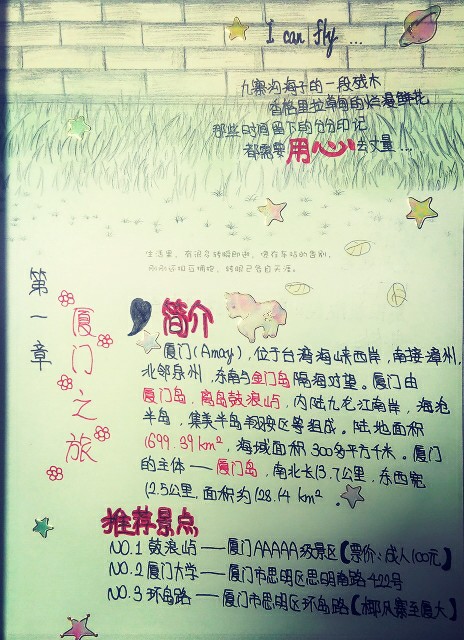 I can fly ...
九寨沟海子的一段残木
香格里拉草甸的烂漫鲜花
那些时间留下的分分印记
都需要用心去丈量...
生活里，有很多转瞬即逝，像在车站的告别，
刚刚还相互拥抱，转眼已各自天涯。
第一章
厦门之旅
简介
厦门(Amoy)，位于台湾海峡西岸，南接漳州，
北邻泉州，东南与金门岛隔海对望。厦门由
厦门岛，离岛鼓浪屿，内陆九龙江南岸，海沧
半岛，集美半岛翔安区等组成。陆地面积
1699.39km²，海域面积300多平方千米。厦门
的主体——厦门岛，南北长13.7公里，东西宽
12.5公里，面积为128.14km²。
推荐景点
NO.1鼓浪屿——厦门AAAAA级景区【票价：成人100元】
NO.2厦门大学——厦门市思明区思明南路422号
NO.3环岛路——厦门市思明区环岛路【椰风寨至厦大】